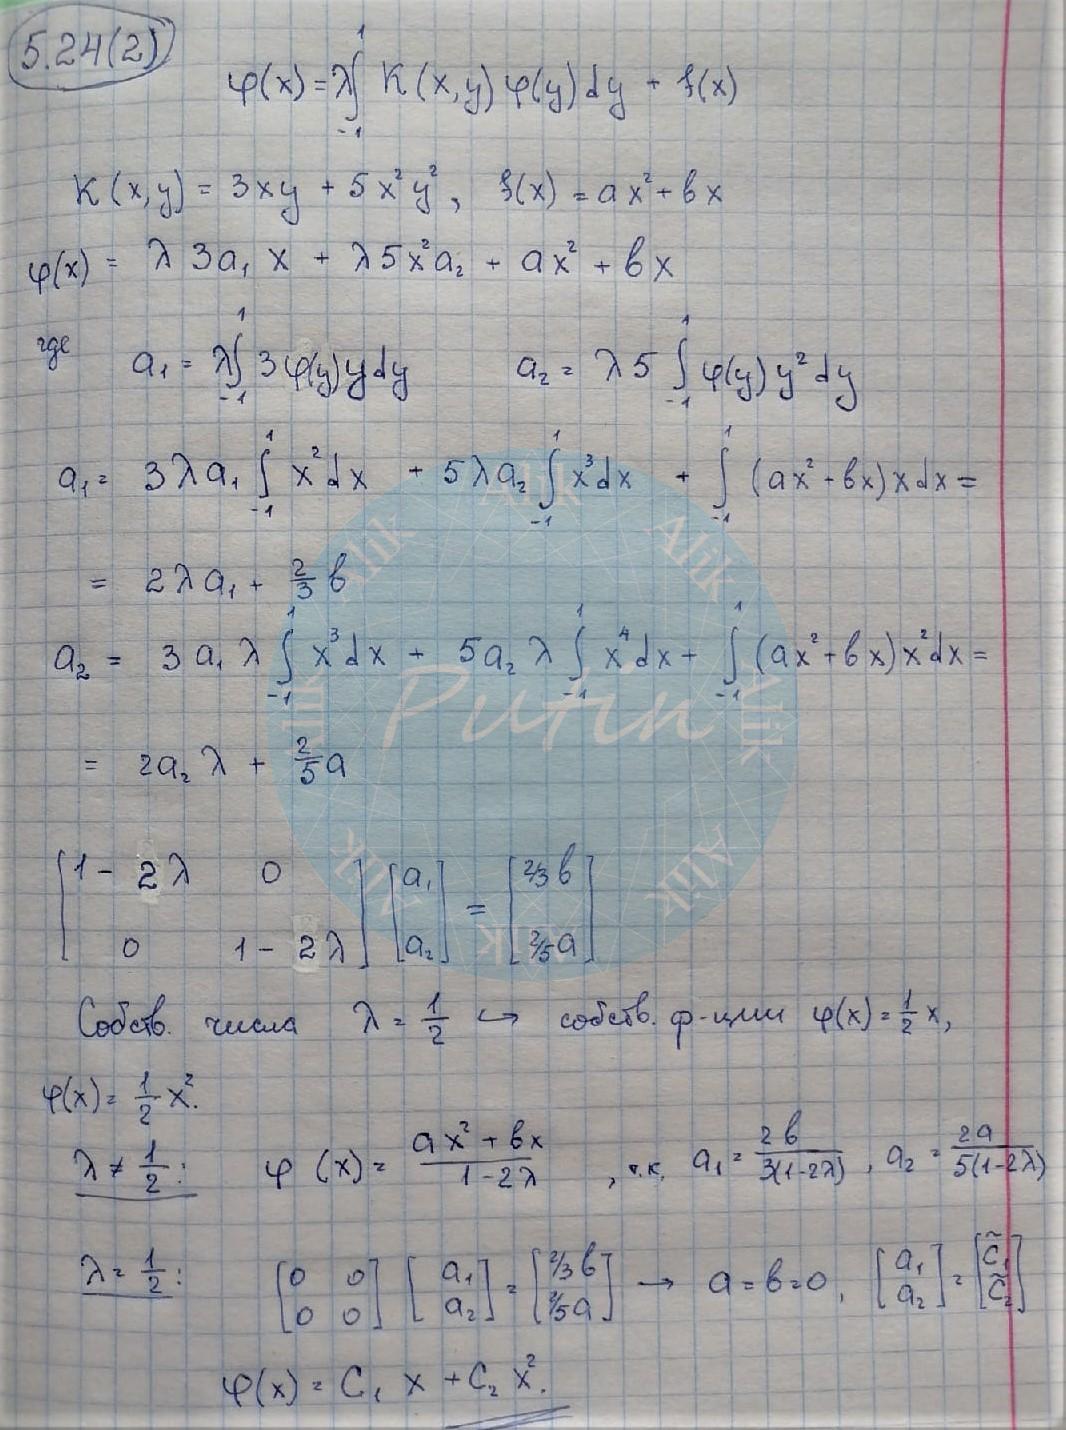 5.24(2)
φ(x) = λ∫_{-1}^{1} K(x,y) φ(y) dy + f(x)
K(x,y) = 3xy + 5x²y², f(x) = ax² + bx
φ(x) = λ3a₁x + λ5x²a₂ + ax² + bx
где a₁ = λ∫_{-1}^{1} 3φ(y)y dy a₂ = λ5∫_{-1}^{1} φ(y)y² dy
a₁ = 3λa₁∫_{-1}^{1} x²dx + 5λa₂∫_{-1}^{1} x³dx + ∫_{-1}^{1} (ax² + bx)x dx =
= 2λa₁ + 2/3 b
a₂ = 3a₁λ∫_{-1}^{1} x³dx + 5a₂λ∫_{-1}^{1} x⁴dx + ∫_{-1}^{1} (ax² + bx)x²dx =
= 2a₂λ + 2/5 a
[1 - 2λ 0] [a₁] = [2/3 b]
[0 1 - 2λ] [a₂] [2/5 a]
Собств. числа λ = 1/2 ↪ собств. ф-ции φ(x) = 1/2 x,
φ(x) = 1/2 x².
λ ≠ 1/2: φ(x) = (ax² + bx)/(1-2λ), т.к. a₁ = 2b/(3(1-2λ)), a₂ = 2a/(5(1-2λ))
λ = 1/2: [0 0; 0 0] [a₁; a₂] = [2/3 b; 2/5 a] → a = b = 0, [a₁; a₂] = [C̃₁; C̃₂]
φ(x) = C₁ x + C₂ x².
Putin
Alik
Alik
Alik
Alik
Alik
Alik
Alik
Alik